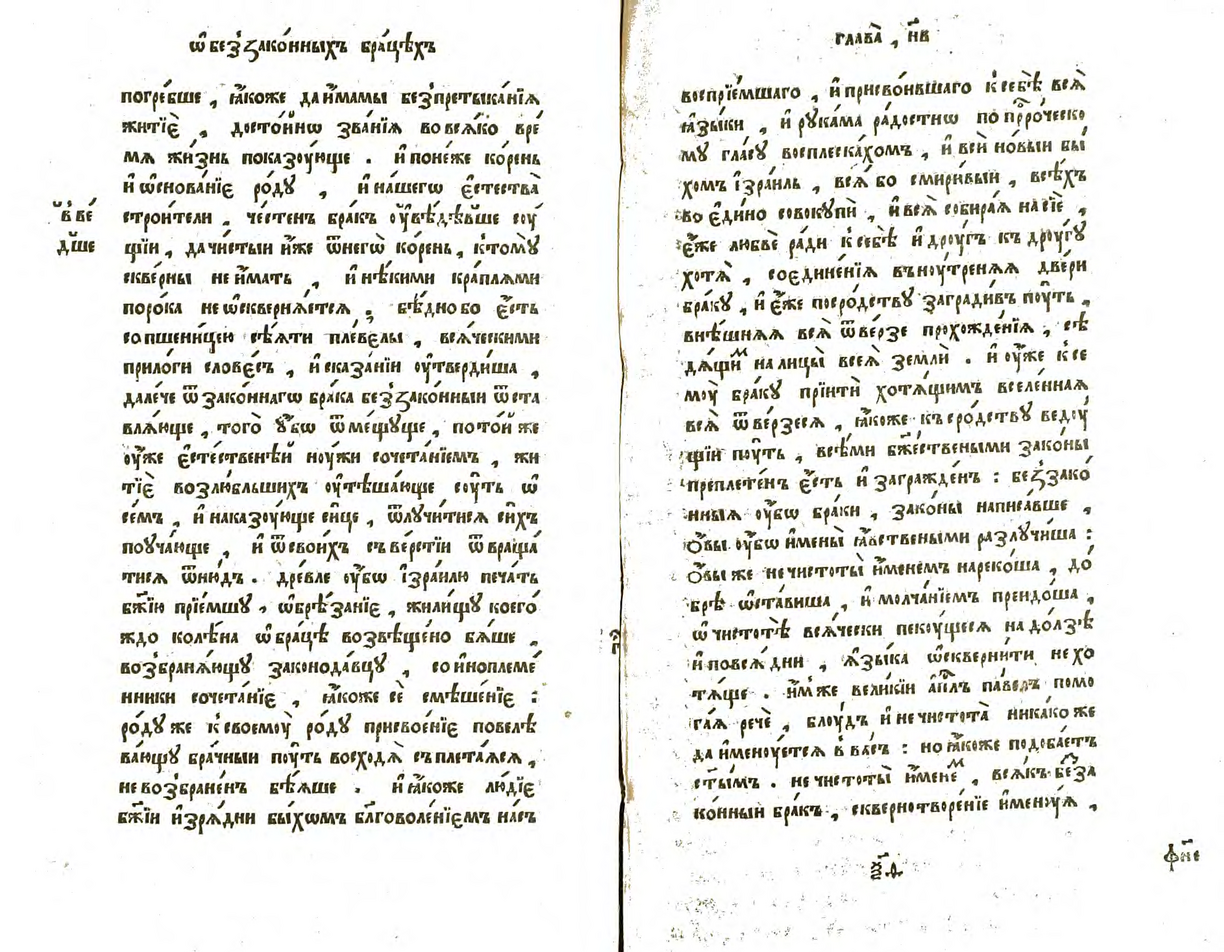 ѡ҆ беззако́нныхъ бра́цѣхъ
погре́бше , ꙗ҆́коже да и҆́мамы безпретыка́нїѧ
житїѐ , досто́йнѡ зва́нїѧ во всѧ́ко вре́
мѧ жи́знь показꙋ́юще . и҆ поне́же ко́рень
и҆ ѡ҆снова́нїе ро́дꙋ , и҆ на́шегѡ є҆стества̀
въ ве́
дꙋ́ше
строи́тели , че́стенъ бра́къ оу҆вѣ́дѣвше сꙋ́
щїи , да чи́стыи и҆́же ѿ негѡ̀ ко́рень , к томꙋ̀
скве́рны не и҆́мать , и҆ нѣ́кими кра́плѧми
поро́ка не ѡ҆сквернѧ́етсѧ , бѣ́дно бо є҆́сть
со пшени́цею сѣ́ѧти пле́велы , всѧ́ческими
прило́ги слове́съ , и҆ сказа́нїи оу҆тверди́ша ,
дале́че ѿ зако́ннагѡ бра́ка беззако́нныи ѿста
влѧ́юще , того̀ оу҆́бѡ ѿме́щꙋще , по то́й же
оу҆́же є҆сте́ственѣй нꙋ́жи сочета́нїемъ , жи
тїѐ возлю́бльшихъ оу҆тѣша́юще сꙋ́ть ѡ҆
се́мъ , и҆ наказꙋ́юще си́це , ѿлꙋчи́тисѧ си́хъ
поꙋча́юще , и҆ ѿ свои́хъ съверсти́и ѿвраща́
тисѧ ѿню́дъ . дре́вле оу҆́бѡ і҆зра́илю печа́ть
бж҃їю прїе́мшꙋ , ѡ҆брѣ́занїе , жили́щꙋ коего́
ждо колѣ́на ѡ҆ бра́цѣ возвѣще́но бѧ́ше ,
возбранѧ́ющꙋ законода́вцꙋ , со и҆ноплеме́
нники сочета́нїе , ꙗ҆́коже сѐ смѣше́нїе :
ро́дꙋ же к своемꙋ̀ ро́дꙋ присвое́нїе повелѣ
ва́ющꙋ бра́чныи пꙋ́ть восходѧ̀ съплета́ѧсѧ ,
не возбране́нъ бѣ́ѧше . и҆ ꙗ҆́коже лю́дїе
бж҃їи и҆зрѧ́дни бы́хѡмъ бл҃говоле́нїемъ на́съ
глава̀ , н҃в
воспрїе́мшаго , и҆ присво́ившаго к себѣ̀ всѧ̀
ꙗ҆зы́ки , и҆ рꙋка́ма ра́достнѡ по прⷪ҇ро́ческо
мꙋ гла́сꙋ восплеска́хомъ , и҆ всѝ но́выи бы́
хомъ і҆зра́иль , всѧ̀ бо смири́выи , всѣ́хъ
во є҆ди́но совокꙋпѝ , и҆ всѧ̀ собира́ѧ на сїѐ ,
є҆́же любвѐ ра́ди к себѣ̀ и҆ дрꙋ́гъ къ дрꙋ́гꙋ
хотѧ̀ , соедине́нїѧ внꙋ́тренѧѧ две́ри
бра́кꙋ , и҆ є҆́же по сро́дствꙋ загради́въ пꙋ́ть ,
внѣ́шнѧѧ всѧ̀ ѿве́рзе прохожде́нїѧ , сѣ
дѧ́щиⷨ на лицы̀ всеѧ̀ землѝ . и҆ оу҆́же к се
мꙋ̀ бра́кꙋ прїитѝ хотѧ́щимъ вселе́ннаѧ
всѧ̀ ѿве́рзесѧ , ꙗ҆́коже къ сро́дствꙋ ведꙋ́
щїи пꙋ́ть , всѣ́ми бж҃е́ствеными зако́ны
преплете́нъ є҆́сть и҆ загражде́нъ : беззако́
нныѧ оу҆́бѡ бра́ки , зако́ны написа́вше ,
ѻ҆́вы оу҆́бѡ и҆мены̀ ꙗ҆́вствеными разлꙋчи́ша :
ѻ҆́вы же нечистоты̀ и҆́менемъ нареко́ша , до́
брѣ ѡ҆ста́виша , и҆ молча́нїемъ преидо́ша ,
ѡ҆ чистотѣ̀ всѧ́чески пекꙋ́щесѧ на до́лзѣ
и҆ по всѧ́ дни , ꙗ҆зы́ка ѡ҆скверни́ти не хо
тѧ́ще . и҆́мже вели́кїи а҆пⷭ҇лъ па́велъ помо
га́ѧ речѐ , блꙋ́дъ и҆ нечистота̀ никако же
да и҆менꙋ́етсѧ в ва́съ : но ꙗ҆́коже подоба́етъ
ст҃ы́мъ . нечистоты̀ и҆́менеⷨ , всѧ́къ беза
ко́нныи бра́къ , сквернотворе́нїе и҆менꙋ́ѧ ,